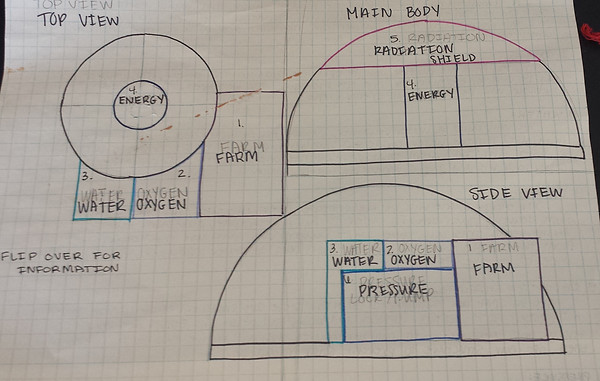 TOP VIEW
TOP VIEW
4.
ENERGY
1.
FARM
FARM
3.
WATER
WATER
2.
OXYGEN
OXYGEN
FLIP OVER FOR
INFORMATION
MAIN BODY
5. RADIATION
RADIATION
SHIELD
4.
ENERGY
SIDE VIEW
3. WATER
WATER
2. OXYGEN
OXYGEN
1. FARM
FARM
PRESSURE
PRESSURE